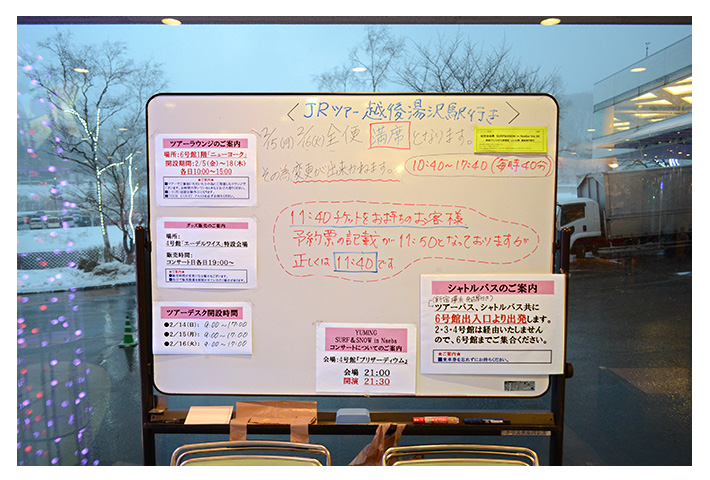 〈JRツアー越後湯沢駅行き〉
2/15(月)2/16(火)全便 満席 となります。
その為変更が出来かねます。
10:40〜17:40(毎時40分)
11:40チケットをお持ちのお客様
予約票の記載が11:50となっておりますが
正しくは 11:40 です
ツアーラウンジのご案内
場所:6号館1階「ニューヨーク」
開設期間:2/5(金)〜18(木)
各日10:00〜15:00
★ご案内★
グッズ販売のご案内
場所:
4号館「エーデルワイス」特設会場
販売時間:
コンサート日各日19:00〜
★ご案内★
ツアーデスク開設時間
●2/14(日): 9:00〜17:00
●2/15(月): 9:00〜17:00
●2/16(火): 9:00〜17:00
YUMING
SURF&SNOW in Naeba
コンサートについてのご案内
会場:4号館「ブリザーディウム」
会場 21:00
開演 21:30
シャトルバスのご案内
ツアーバス、シャトルバス共に
6号館出入口より出発します。
2・3・4号館は経由いたしません
ので、6号館までご集合ください。
★ご案内★
■乗車券を忘れずにお持ちください。